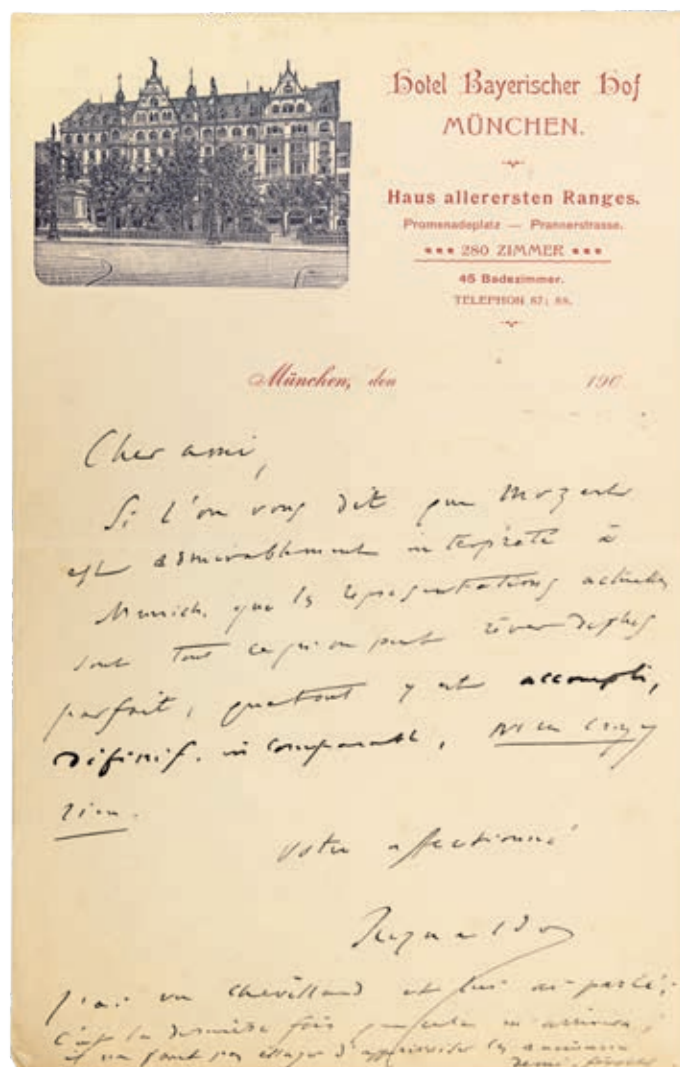 Hotel Bayerischer Hof
MÜNCHEN.
Haus allerersten Ranges.
Promenadeplatz — Prannerstrasse.
*** 280 ZIMMER ***
45 Badezimmer.
TELEPHON 87; 88.
München, den 190
Cher ami,
Si l'on vous dit que Mozart
est admirablement interprété à
Munich, que les représentations actuelles
sont tout ce qu'on peut rêver de plus
parfait, que tout y est accompli,
définitif, incomparable, n'en croyez
rien.
Votre affectionné
Reynaldo
J'ai vu Chevillard et lui ai parlé;
C'est la dernière fois que cela m'arrivera;
il ne faut pas essayer d'apprivoiser les
demi-